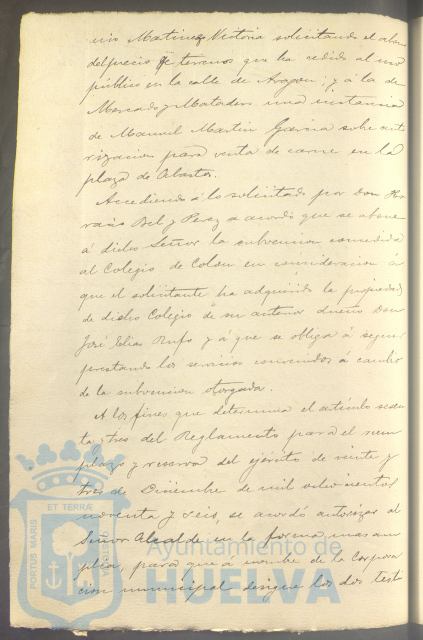 nio Martinez Victoria solicitando el abono
del precio de terreno que ha cedido al uso
público en la calle de Aragon; y á la de
Mercado y Matadero una instancia
de Manuel Martin Garcia sobre auto
rizacion para venta de carne en la
plaza de Abastos.
Accediendo á lo solicitado por Don Ho
racio Bel y Perez se acordó que se abone
á dicho Señor la subvencion concedida
al Colegio de Colon en consideracion á
que el solicitante ha adquirido la propiedad
de dicho Colegio de su anterior dueño Don
José Elias Rufo y á que se obliga á seguir
prestando los servicios convenidos á cambio
de la subvencion otorgada.
A los fines que determina el artículo sesen
ta y tres del Reglamento para el reem
plazo y reserva del ejército de veinte y
tres de Diciembre de mil ochocientos
noventa y seis, se acordó autorizar al
Señor Alcalde en la forma mas am
plia, para que á nombre de la Corpora
cion municipal designe los dos testi
PORTUS MARIS ET TERRÆ CUSTODIA
Ayuntamiento de
HUELVA